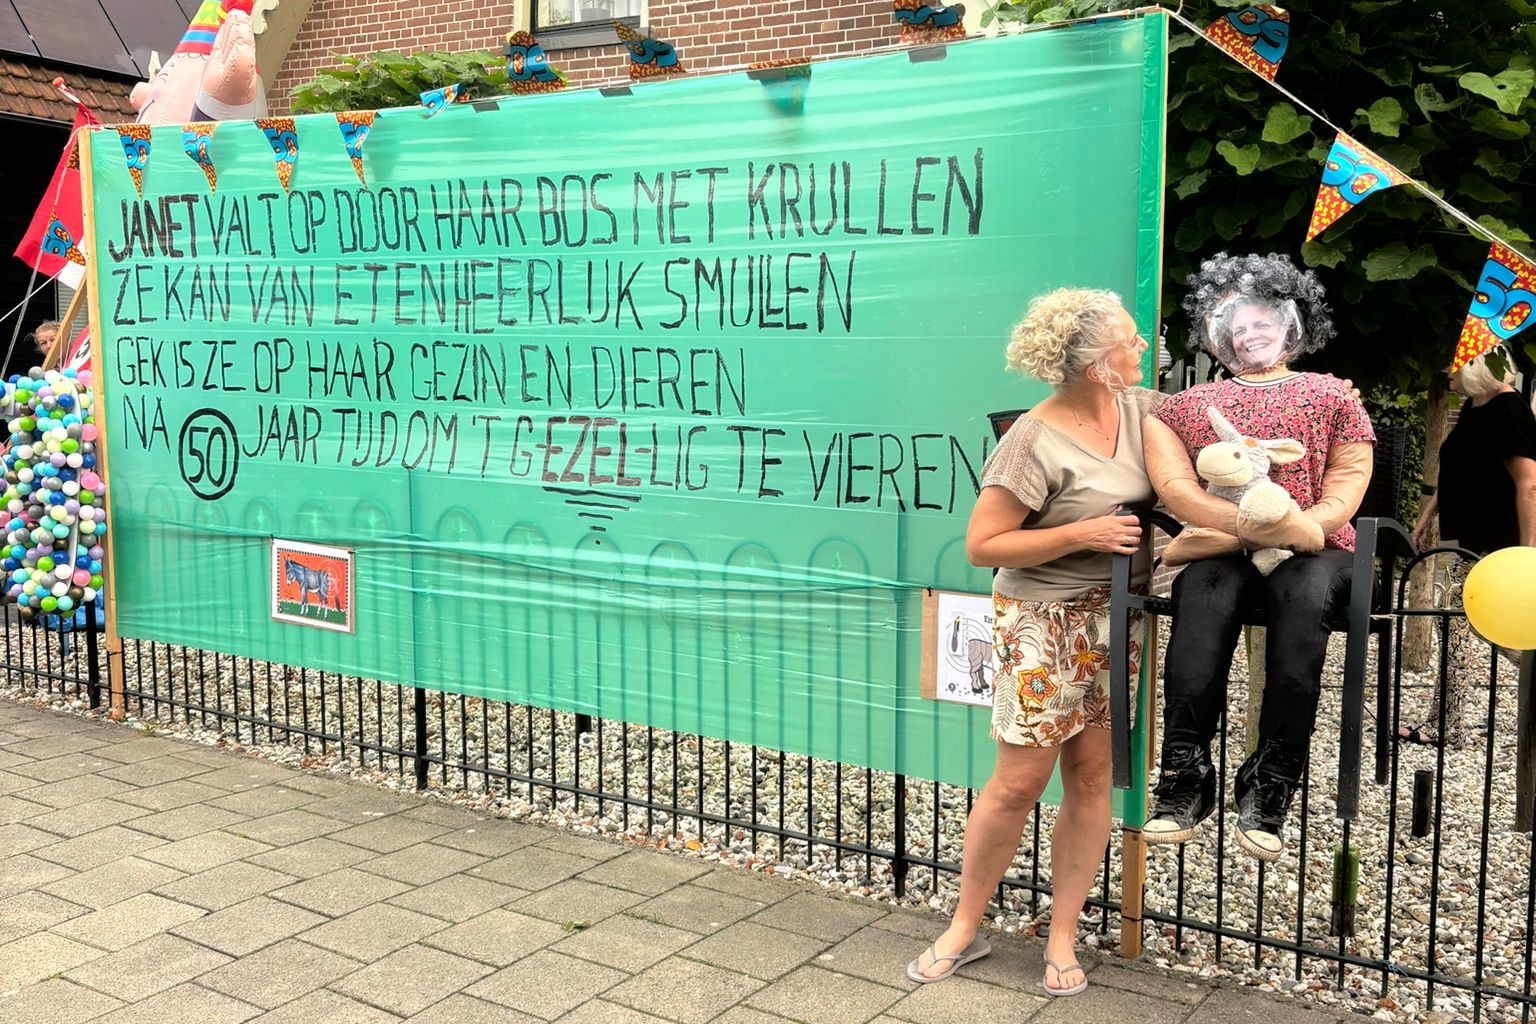 JANET VALT OP DOOR HAAR BOS MET KRULLEN
ZE KAN VAN ETEN HEERLIJK SMULLEN
GEK IS ZE OP HAAR GEZIN EN DIEREN
NA 50 JAAR TIJD OM 'T GEZEL-LIG TE VIEREN
50
50
50
50
50
50
50
50
50
50
50